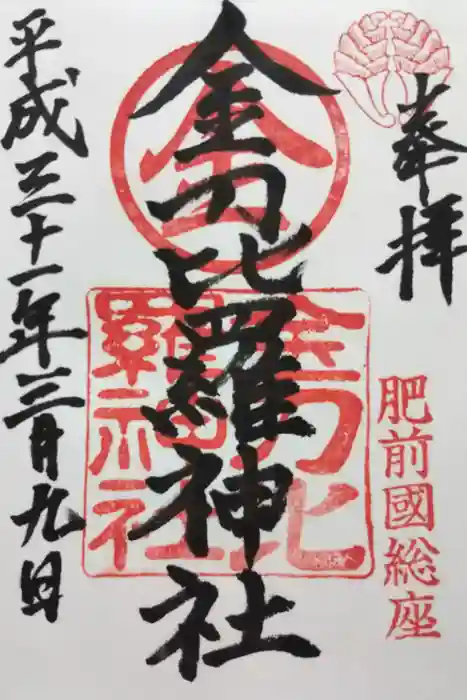 奉拝
肥前國総座
金刀比羅神社
金
金刀比
羅神社
平成三十一年三月九日